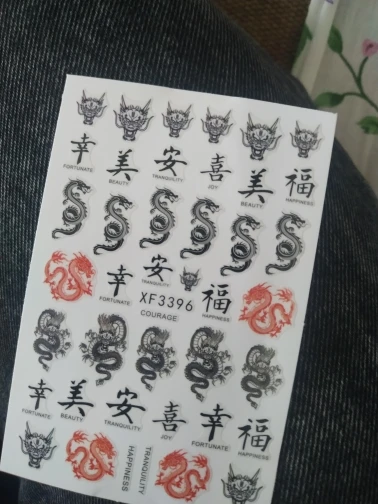 幸 美 安 喜 美 福
FORTUNATE BEAUTY TRANQUILITY JOY BEAUTY HAPPINESS
幸 安 福
FORTUNATE TRANQUILITY HAPPINESS
XF3396
COURAGE
幸 美 安 喜 幸 福
FORTUNATE BEAUTY TRANQUILITY JOY FORTUNATE HAPPINESS
HAPPINESS
TRANQUILITY